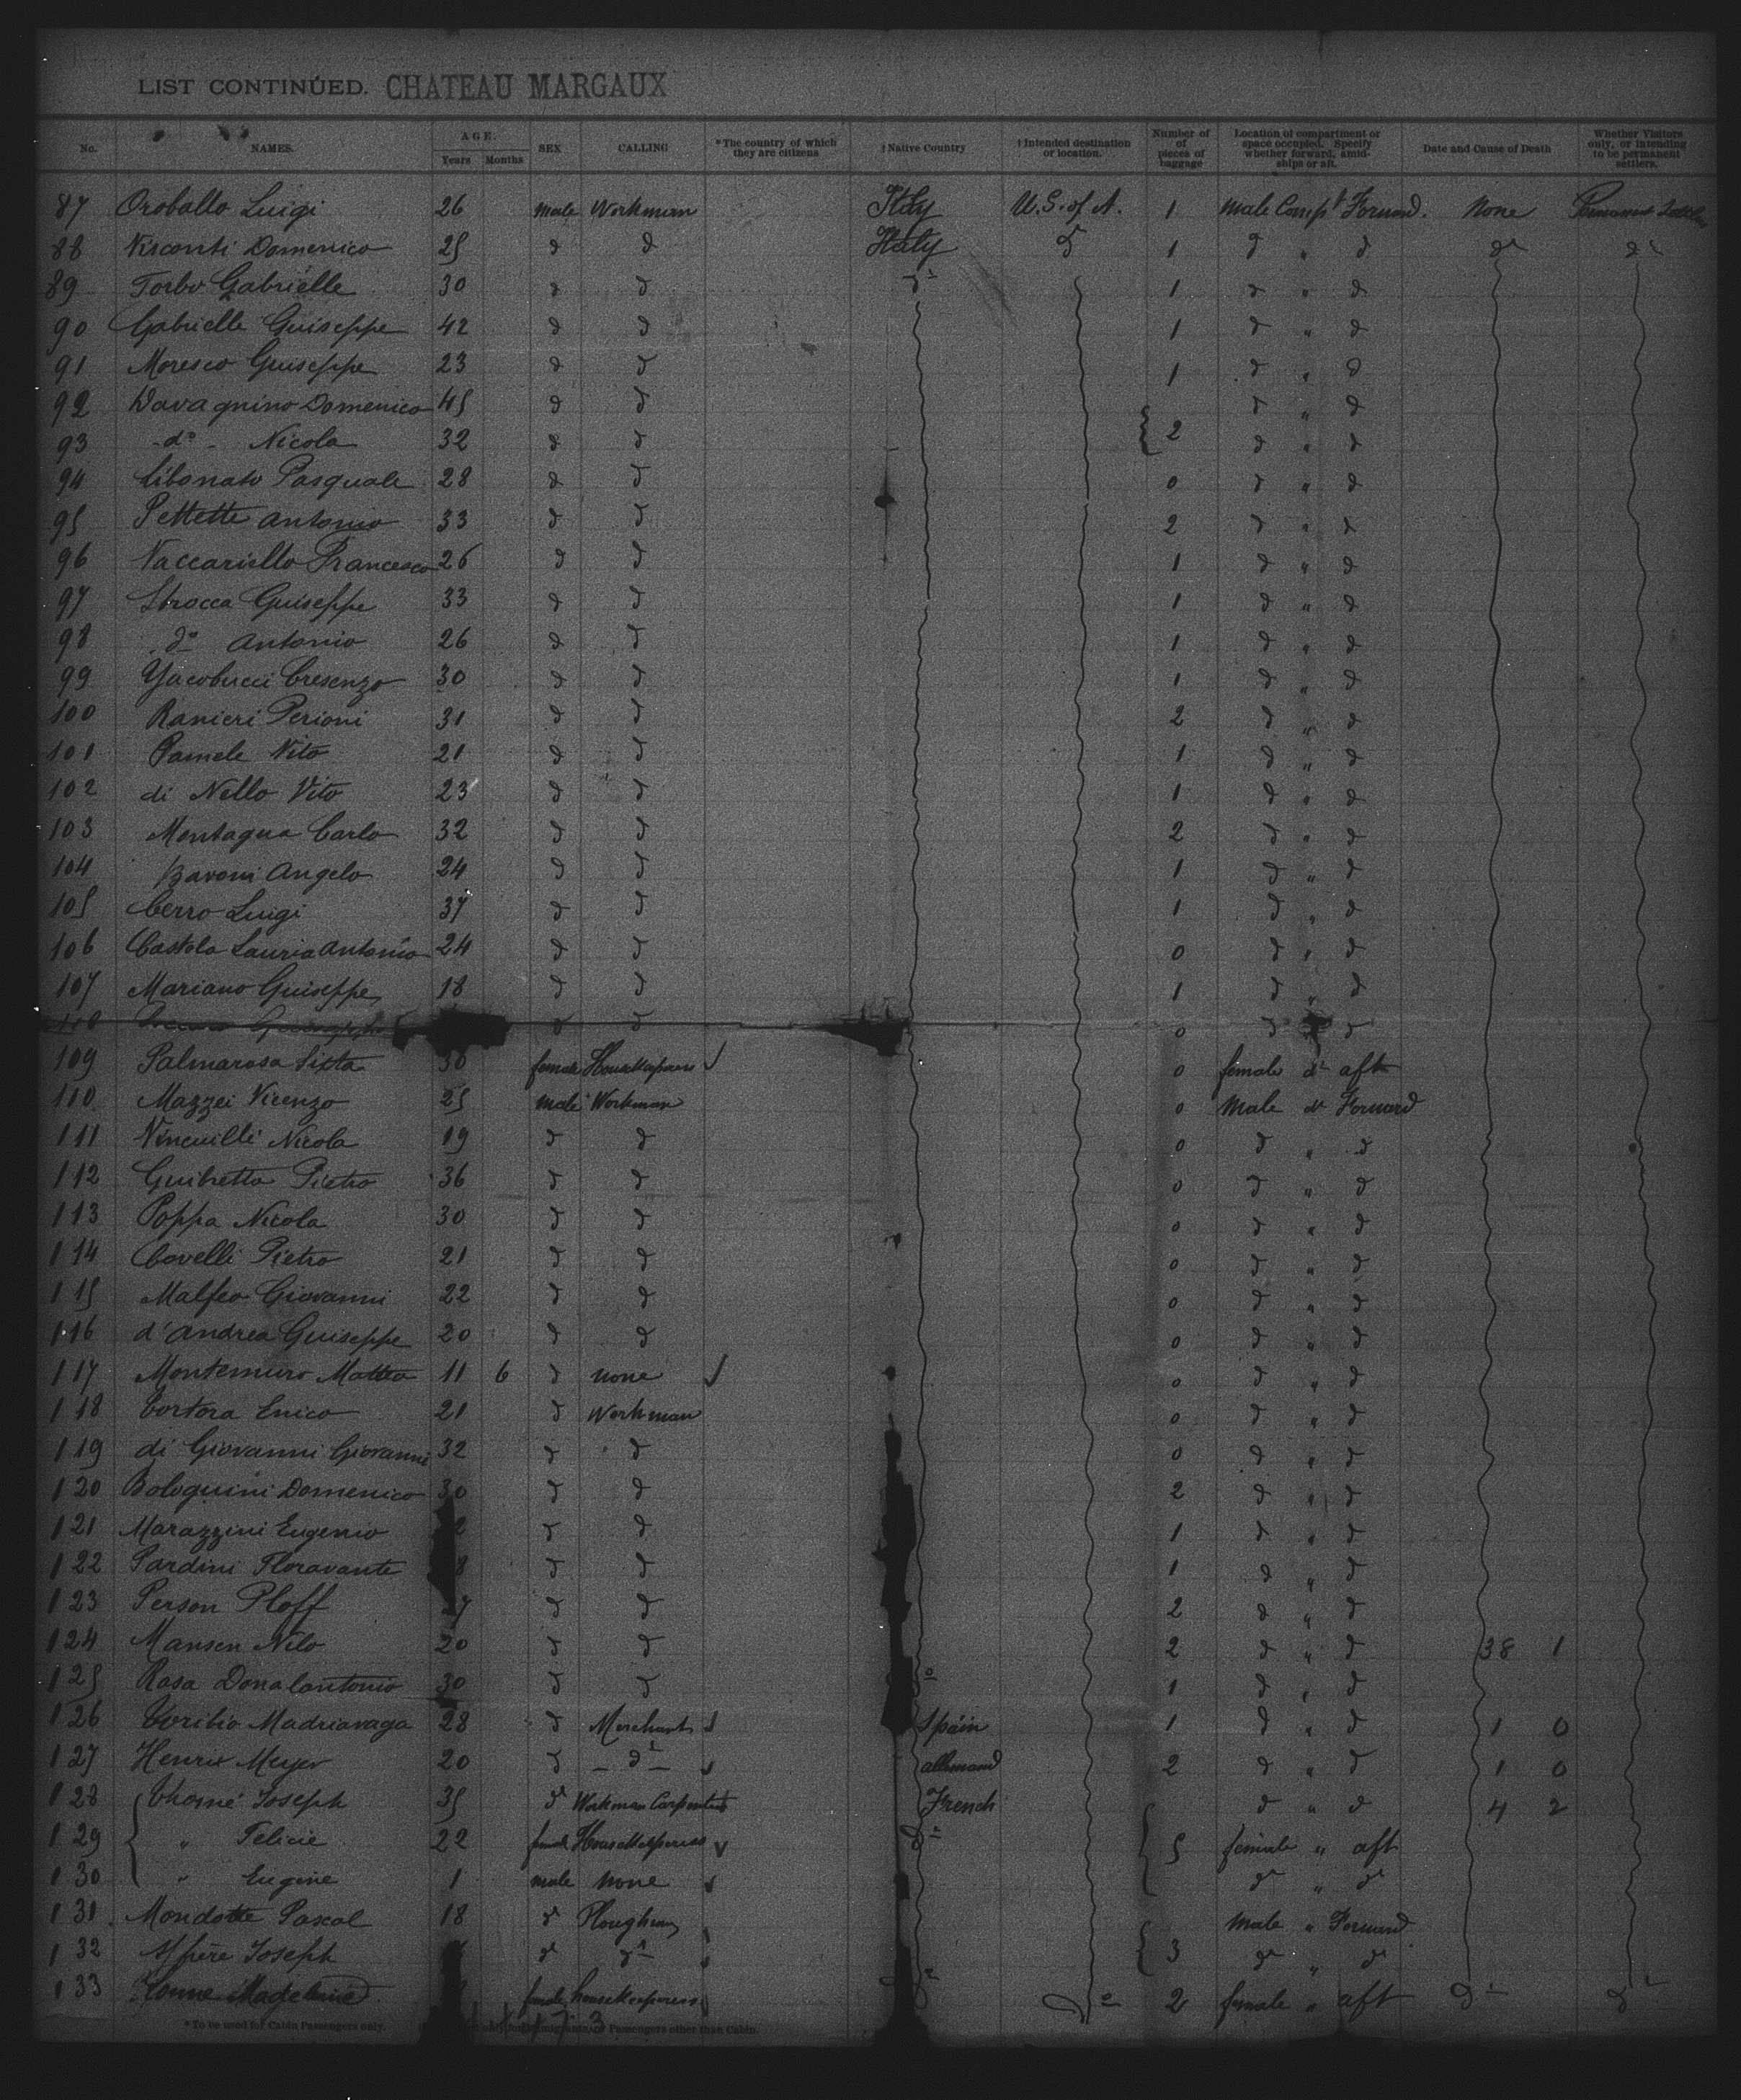 LIST CONTINUED. CHATEAU MARGAUX
No. NAMES. AGE. Years Months SEX CALLING *The country of which they are citizens †Native Country †Intended destination or location. Number of pieces of baggage Location of compartment or space occupied. Specify whether forward, amidships or aft. Date and Cause of Death Whether Visitors only, or intending to be permanent settlers.
87 Oroballo Luigi 26 male Workman Italy U.S. of A. 1 male Compt Forward. None Permanent
88 Visconti Domenico 25 d d Italy d 1 d " d do do
89 Torbo Gabrielle 30 d d do 1 d " d
90 Gabrielle Guiseppe 42 d d 1 d " d
91 Moresco Guiseppe 23 d d 1 d " d
92 Davagnino Domenico 45 d d d " d
93 -do- Nicola 32 d d 2 d " d
94 Libonato Pasquale 28 d d 0 d " d
95 Pettette Antonio 33 d d 2 d " d
96 Vaccariello Francesco 26 d d 1 d " d
97 Strocca Guiseppe 33 d d 1 d " d
98 do Antonio 26 d d 1 d " d
99 Yacobucci Cresenzo 30 d d 1 d " d
100 Ranieri Perioni 31 d d 2 d " d
101 Pamele Vito 21 d d 1 d " d
102 di Nello Vito 23 d d 1 d " d
103 Montagua Carlo 32 d d 2 d " d
104 Bavoni Angelo 24 d d 1 d " d
105 Cerro Luigi 37 d d 1 d " d
106 Castola Lauria Antonio 24 d d 0 d " d
107 Mariano Guiseppe 18 d d 1 d " d
d d 0 d d
109 Palmarosa Sixta 30 female Housekeeperess 0 female do aft
110 Mazzei Vicenzo 25 male Workman 0 Male do Forward
111 Vincuilli Nicola 19 d d 0 d " d
112 Guibretta Pietro 36 d d 0 d " d
113 Poppa Nicola 30 d d 0 d " d
114 Covelli Pietro 21 d d 0 d " d
115 Malfeo Giovanni 22 d d 0 d " d
116 d'Andrea Guiseppe 20 d d 0 d " d
117 Montemuro Matteo 11 6 d none 0 d " d
118 Tortora Enico 21 d Workman 0 d " d
119 di Giovanni Giovanni 32 d d 0 d " d
120 Bologuini Domenico 30 d d 2 d " d
121 Marazzini Eugenio d d 1 d " d
122 Pardini Floravante d d 1 d " d
123 Person Ploff d d 2 d " d
124 Mansen Nilo 20 d d 2 d " d 38 1
125 Rosa Donalantonio 30 d d do 1 d " d
126 Toribio Madriavaga 28 d Merchant Spain 1 d " d 1 0
127 Henrix Meyer 20 d -do- allemand 2 d " d 1 0
128 Thomé Joseph 35 do Workman Carpenter French d " d 4 2
129 " Felicie 22 female Housekeeperess do 5 female " aft
130 " Eugine 1 male none do " do
131 Mondotte Pascal 18 do Ploughman male " Forward
132 Joseph do do 3 do " do
133 Madeleine female housekeeperess do do 2 female " aft do do
*To be used for Cabin Passengers only. Passengers other than Cabin.